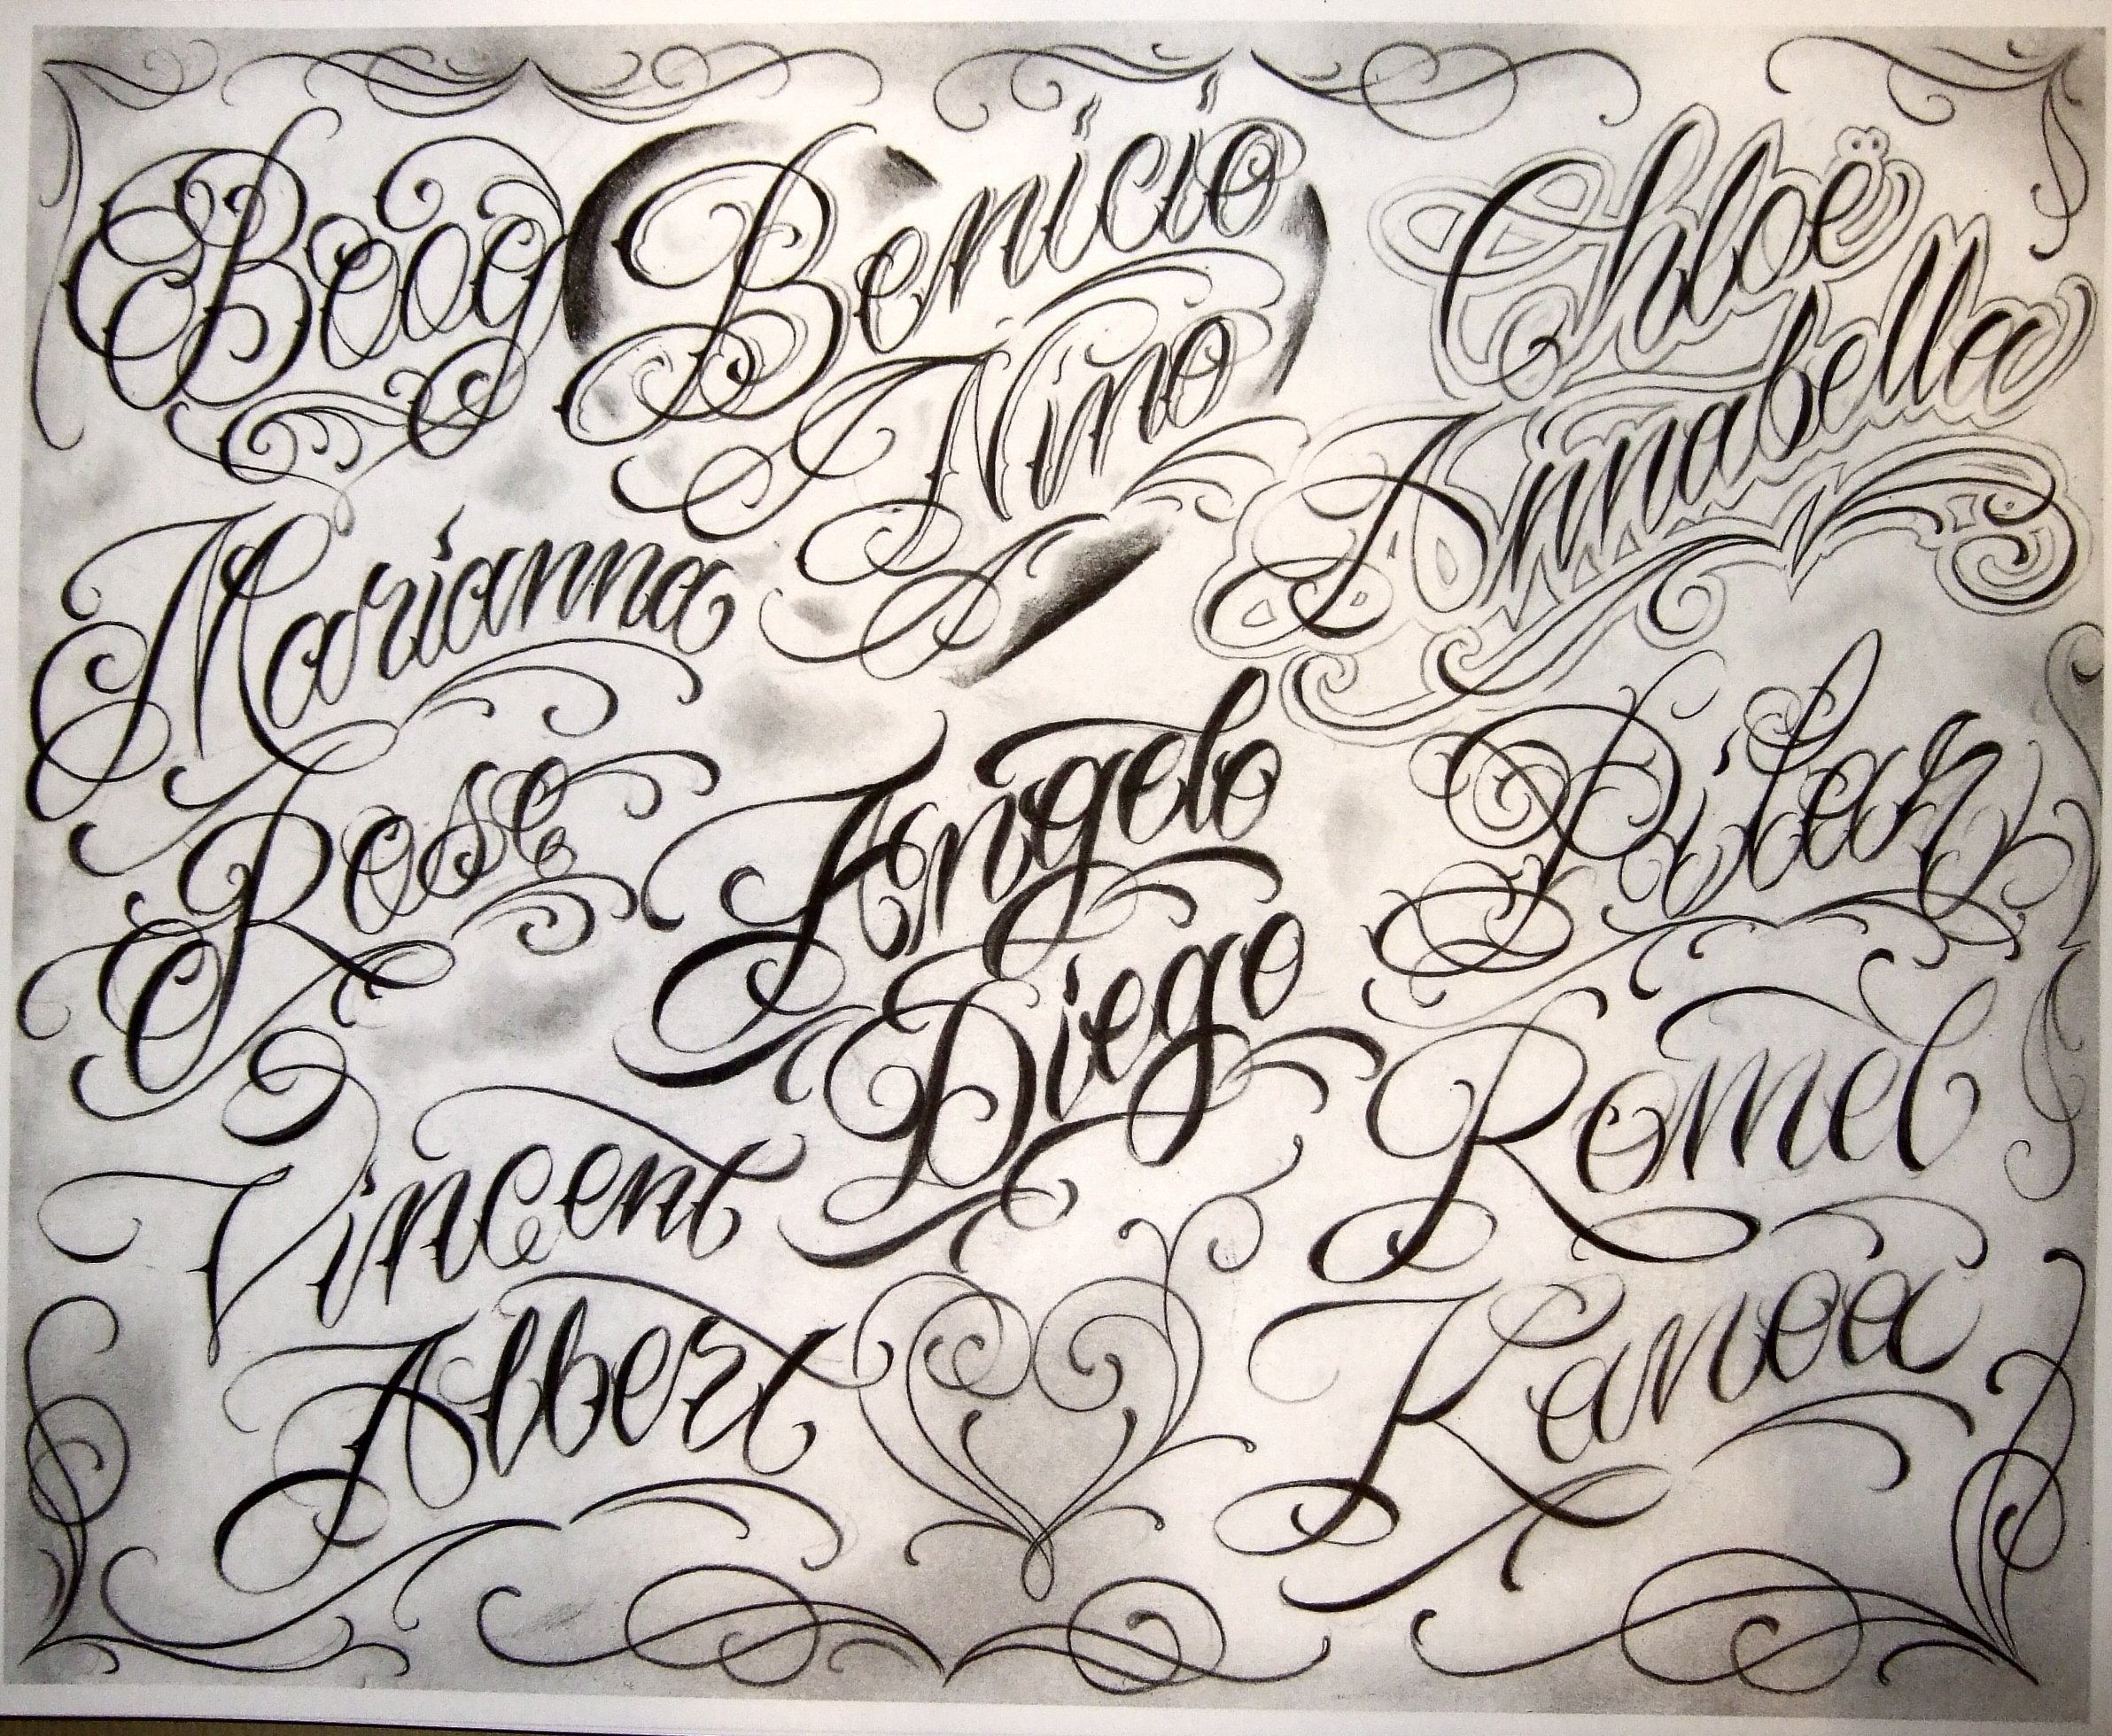 Boog
Benicio
Nino
Chloë
Annabella
Marianna
Rose
Angelo
Diego
Pilar
Romel
Vincent
Albert
Kanoa